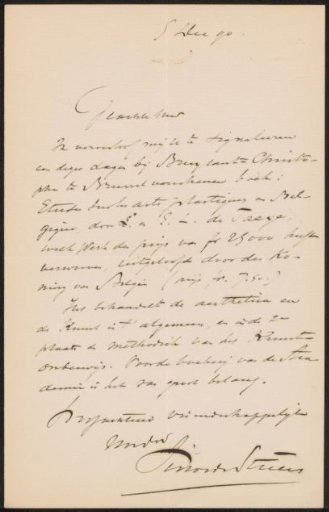 5 Dec 90.
Geachte Heer
Ik veroorloof mij U te signaleren
een dezer dagen bij Bruylant Christo-
phe te Brussel verschenen boek:
Etudes sur les arts plastiques en Bel-
gique door E. L. de Taeye,
welk werk de prijs van fr 25000 heeft
verworven, uitgeloofd door den Ko-
ning van België (prijs fr. 7.50.)
Het behandelt de aesthetica en
de Kunst in 't algemeen, en in de 2e
plaats de methodiek van het Kunst
onderwijs. Voor de boekerij van de Aca
demie is het van groot belang.
vriendschappelijk